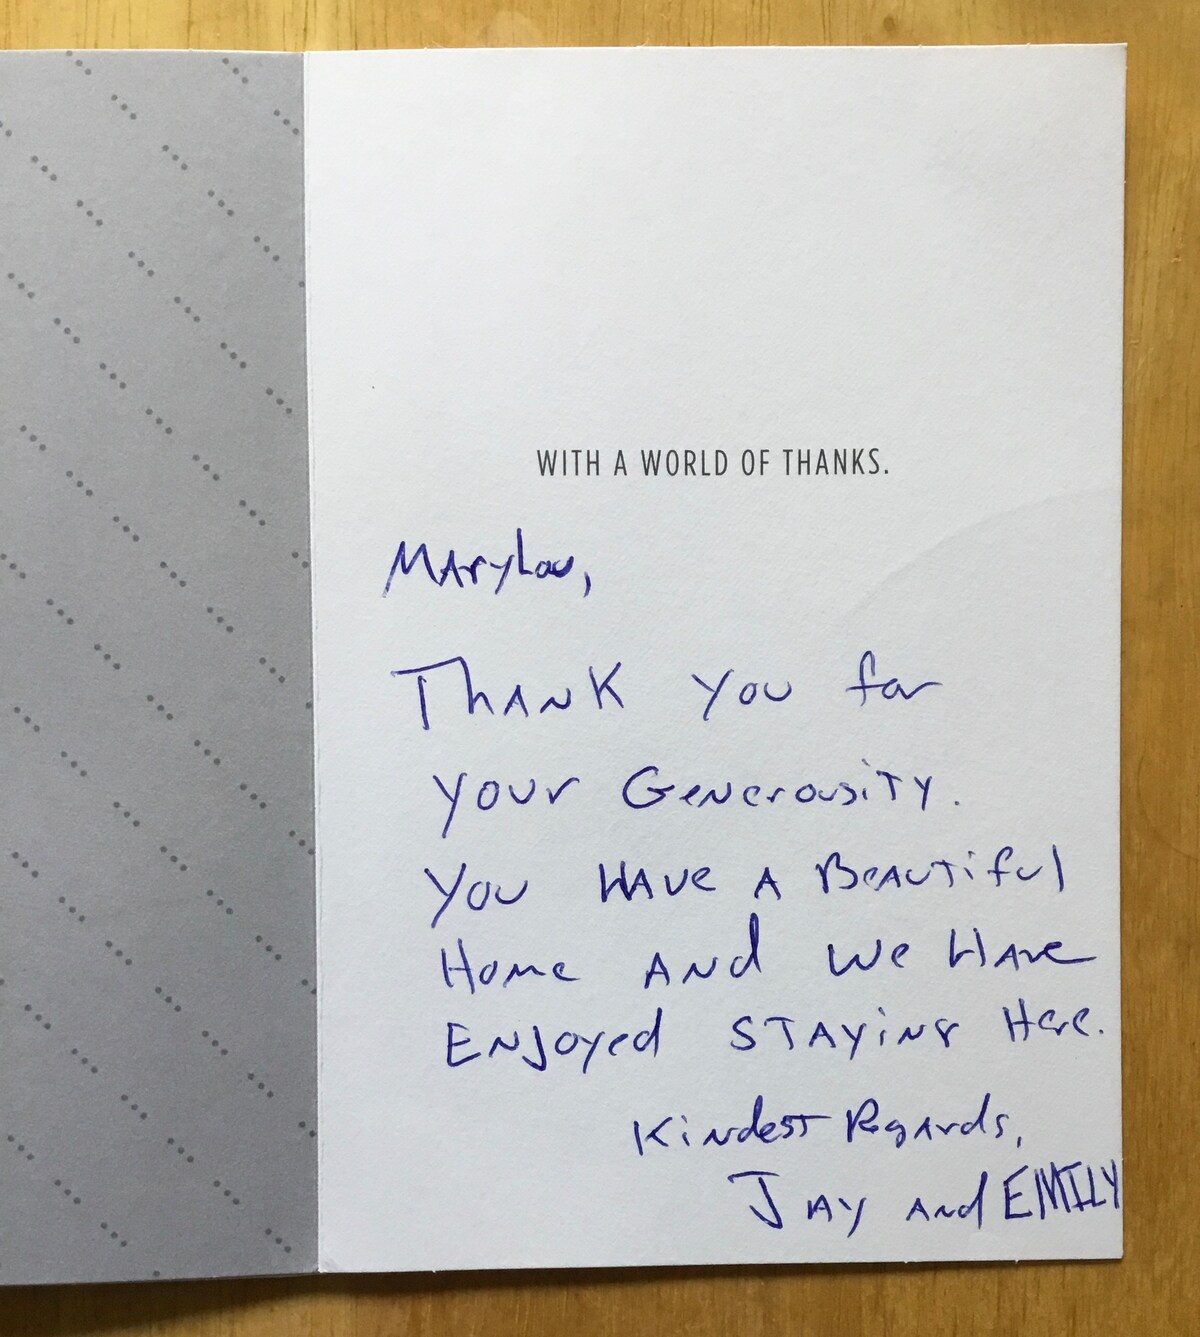 WITH A WORLD OF THANKS.
MAryLou,
THANK you for
your Generousity.
You HAve A BeAuTiful
Home ANd We HAve
ENJoyed STAYiNg Here.
KiNdesT RegArds,
JAy ANd EMILY